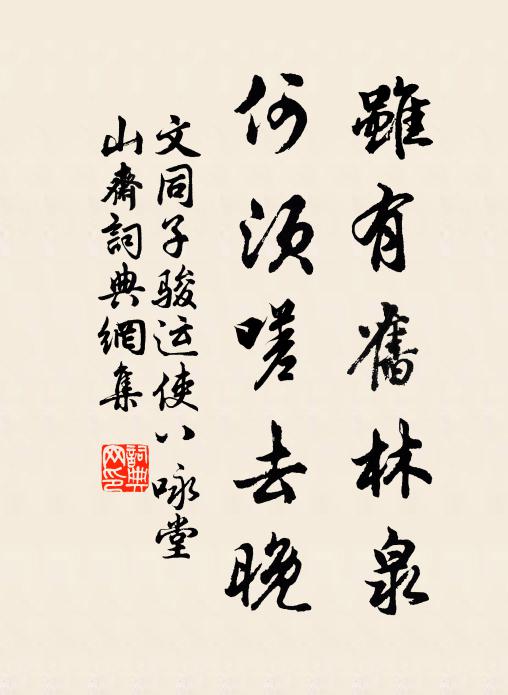 雖有舊林泉
何須嗟去晚
文同子駿运使八咏堂
山齋詞典網集
詞典网印